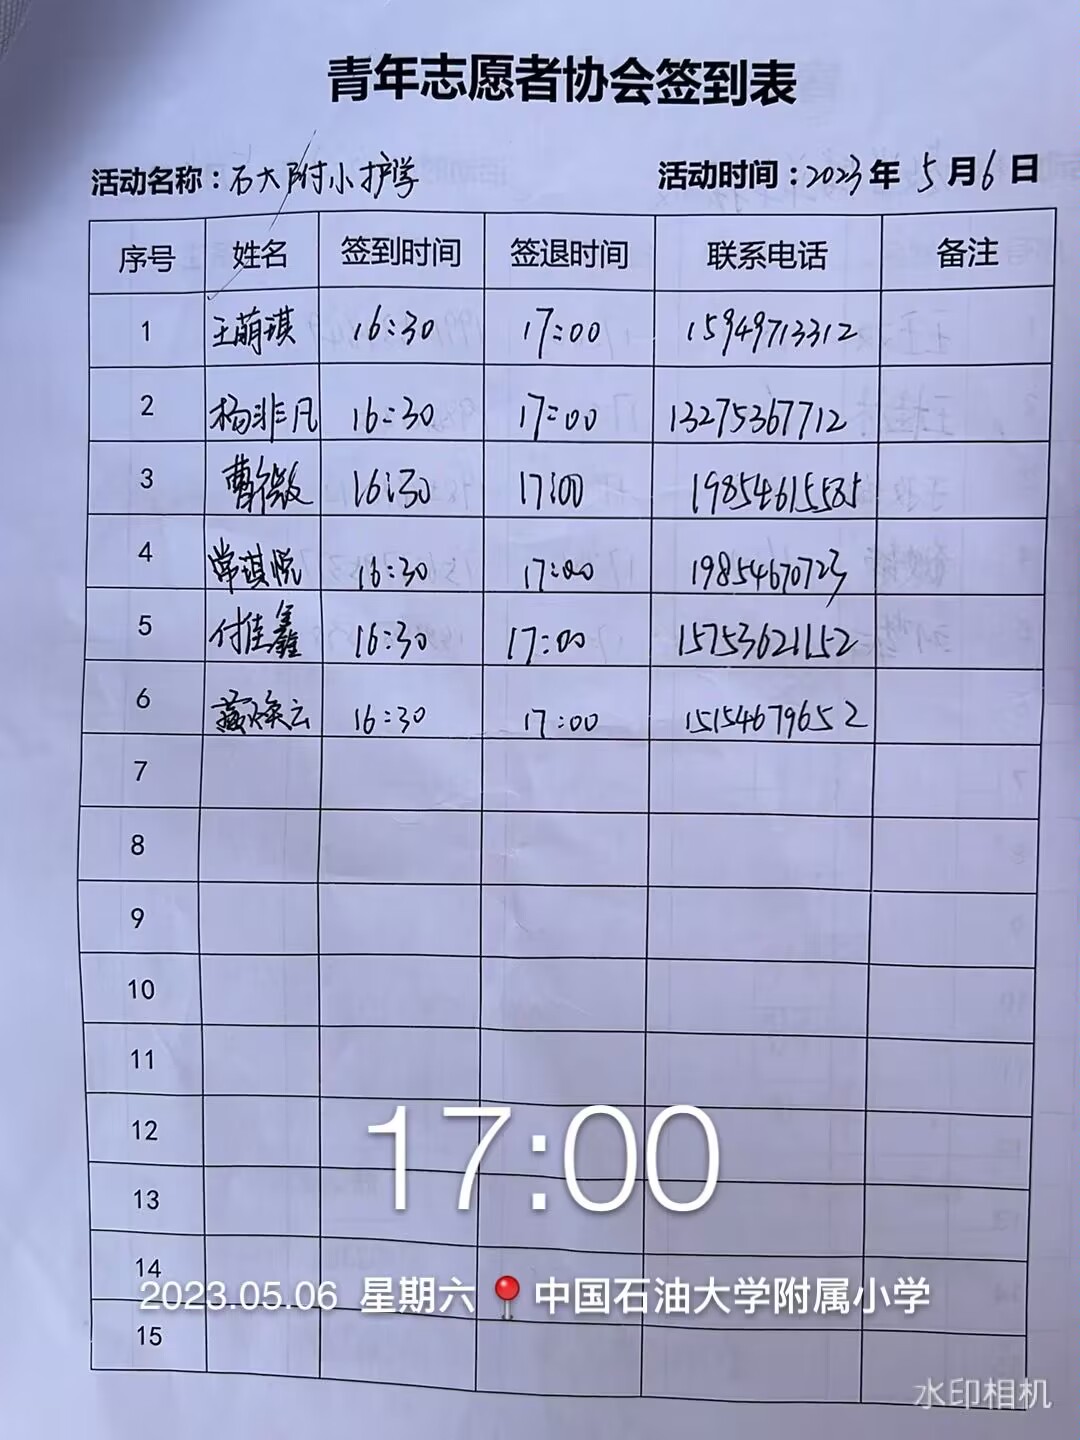 青年志愿者协会签到表
活动名称：石大附小护学 活动时间：2023年5月6日
序号 姓名 签到时间 签退时间 联系电话 备注
1 王萌琪 16:30 17:00 15949713312
2 杨非凡 16:30 17:00 13275367712
3 曹薇 16:30 17:00 19854615585
4 常琪悦 16:30 17:00 19854670723
5 付佳鑫 16:30 17:00 15753621152
6 16:30 17:00 15154679652
7
8
9
10
11
12
17:00
13
14
2023.05.06 星期六 中国石油大学附属小学
15
水印相机